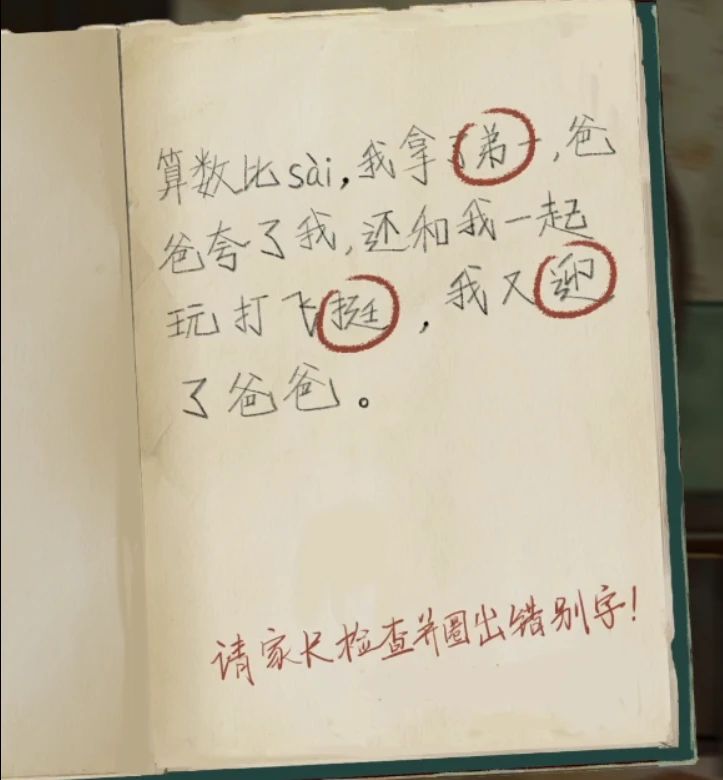 算数比sài,我拿了弟一,爸
爸夸了我,还和我一起
玩打飞挺,我又迎
了爸爸。
请家长检查并圈出错别字!